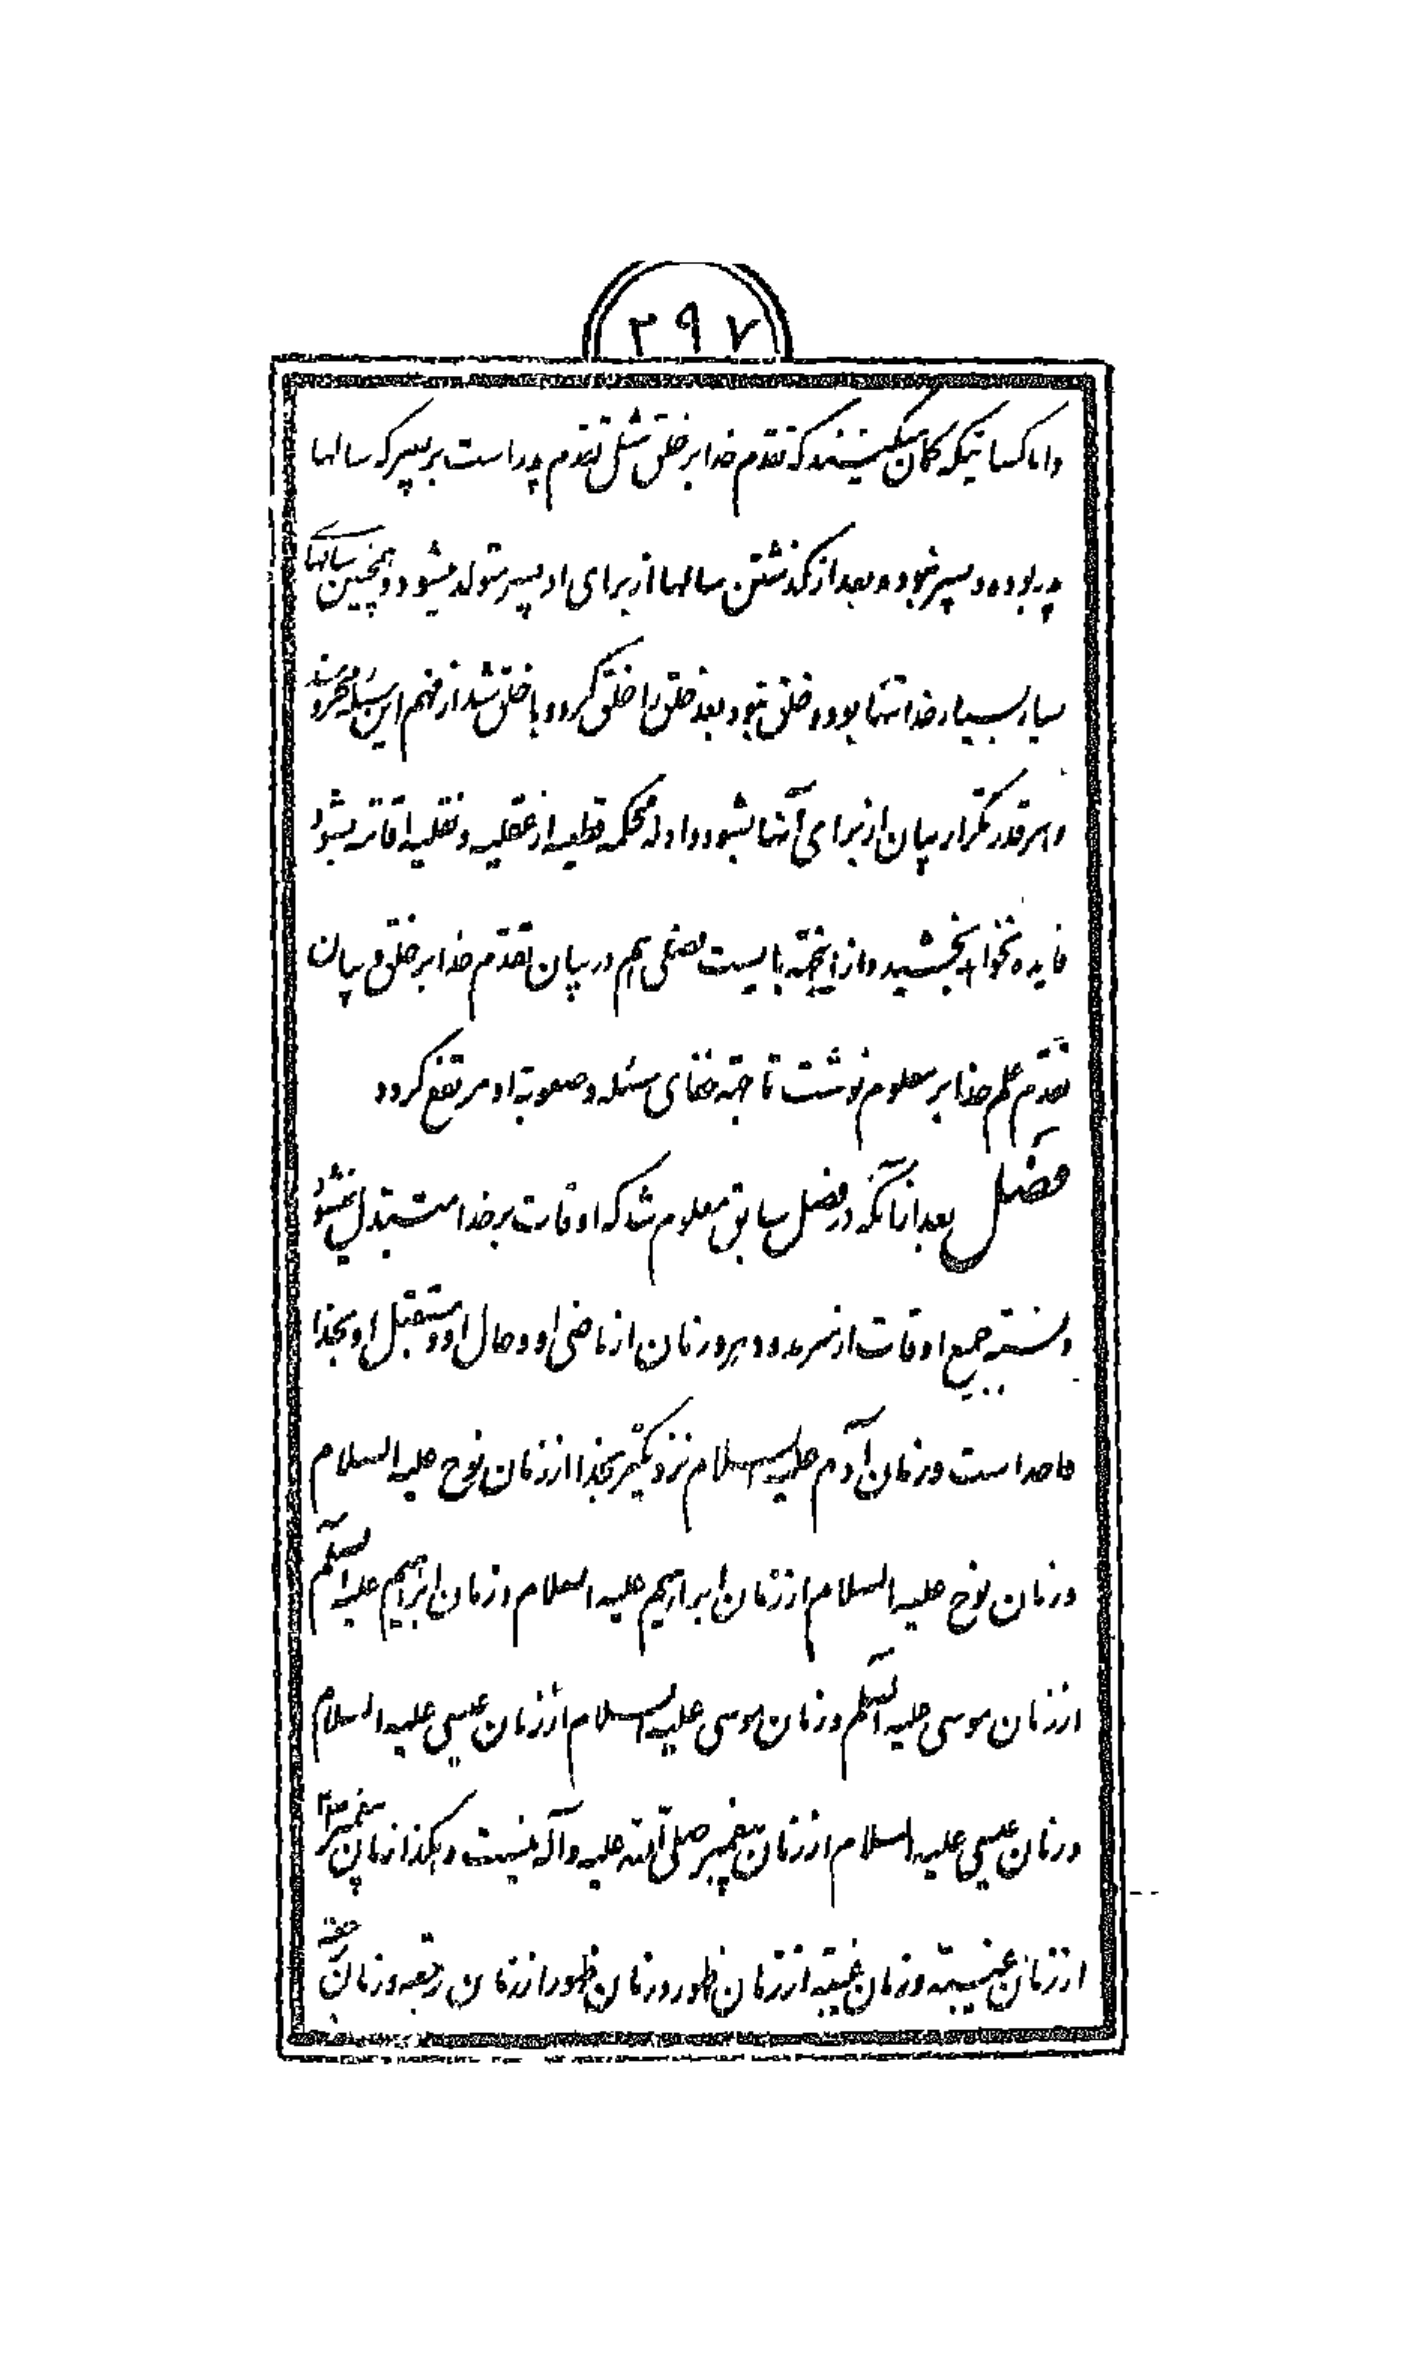 ۲۹۷
و اما کسانیکه گمان میکنند که تقدم خدا بر خلق مثل تقدم پدر است بر پسر که سالها
پدر بوده و پسر نبوده و بعد از گذشتن سالها از برای او پسر متولد میشود و همچنین سالهای
بسیار بسیار خدا تنها بود و خلق نبود بعد خلق را خلق کرد و با خلق شد از فهم این مسئله محرومند
و هر قدر تکرار بیان از برای آنها بشود و ادله محکمه قطعیه از عقلیه و نقلیه اقامه بشود
فایده نخواهد بخشید و از اینجهة بایست فصلی هم در بیان تقدم خدا بر خلق و بیان
تقدم علم خدا بر معلوم نوشت تا جهة خفای مسئله و صعوبة او مرتفع گردد
فصل بعد از آنکه در فصل سابق معلوم شد که اوقات بر خدا متبدل نمیشود
و نسبته جمیع اوقات از سرمد و دهر و زمان از ماضی او و حال او و مستقبل او بخدا
واحد است و زمان آدم علیه السلام نزدیکتر بخدا از زمان نوح علیه السلام
و زمان نوح علیه السلام از زمان ابراهیم علیه السلام و زمان ابراهیم علیه السلم
از زمان موسی علیه السلم و زمان موسی علیه السلام از زمان عیسی علیه السلام
و زمان عیسی علیه السلام از زمان پیغمبر صلی الله علیه و آله نیست و هکذا زمان پیغمبر ص
از زمان غیبة و زمان غیبة از زمان ظهور و زمان ظهور از زمان رجعه و زمان